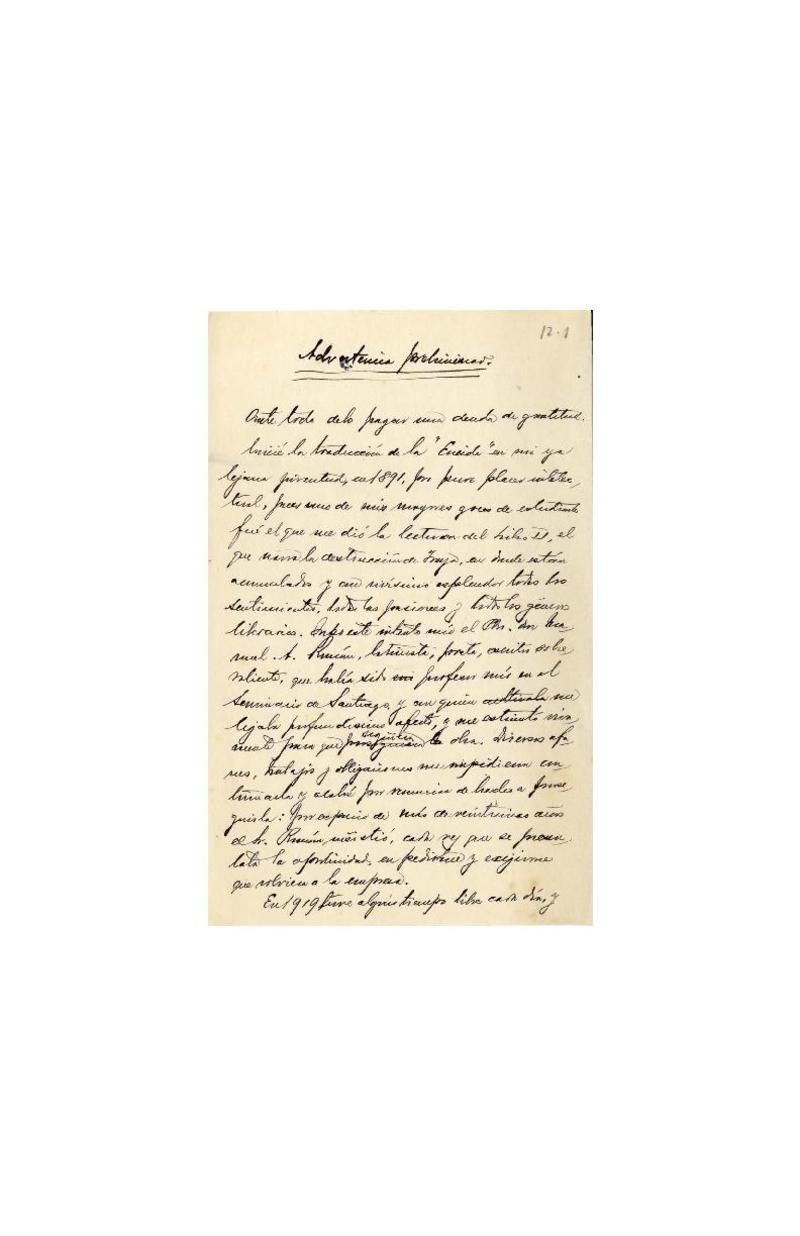 12-1
Advertencia preliminar.
Ante todo debo pagar una deuda de gratitud.
Inicié la traducción de la "Eneida" en mi ya
lejana juventud, en 1891, por puro placer intelec-
tual, pues uno de mis mayores goces de estudiante
fué el que me dió la lectura del Libro II, el
que narra la destrucción de Troya, en donde están
acumulados y con vivísimo esplendor todos los
sentimientos, todas las pasiones y todos los géneros
literarios. este intento mío el Pbro. don Ma-
nuel A. Román, latinista, poeta, escritor sobre
saliente, que había sido profesor mío en el
Seminario de Santiago, y con quien cultivaba me
ligaba profundísimo afecto, y me estimuló viva
mente para que prosiguiera siguiera la obra. Diversos afa-
nes, trabajos y obligaciones me impidieron con-
tinuarla y acabé por renunciar de hecho a prose-
guirla: por espacio de más de veinticinco años
el Sr. Román insistió, cada vez que se presen-
taba la oportunidad, en pedirme y exigirme
que volviera a la empresa.
En 1919 tuve algún tiempo libre cada día, y